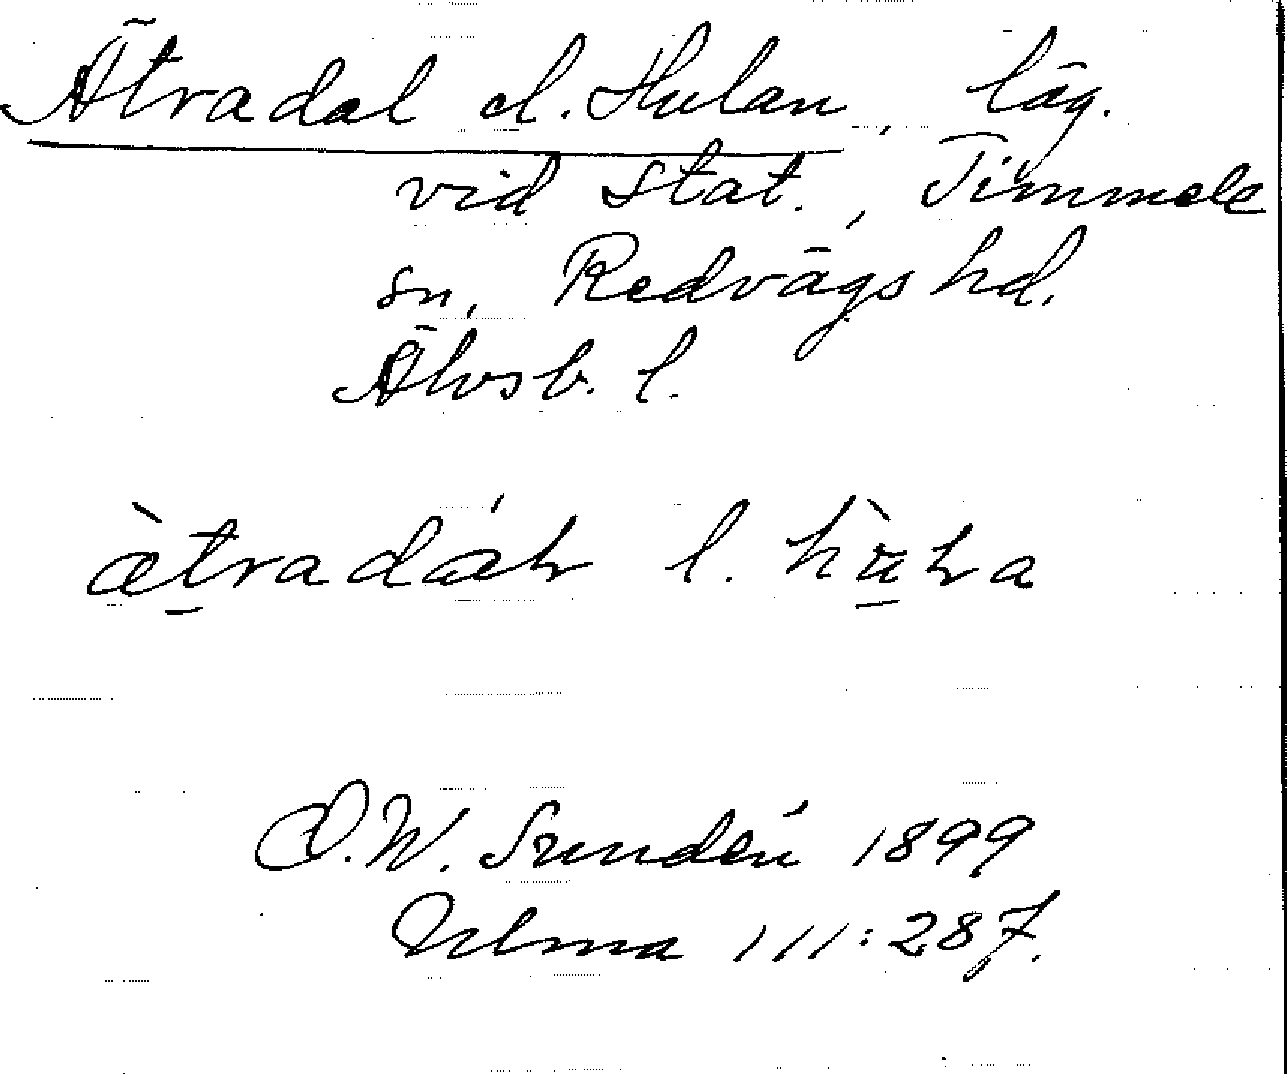 Ätradal el. Hulan, läg.
vid Stat., Timmele
sn, Redvägs hd.
Älvsb. l.
l.
D.W. Sundén 1899
Ulma 111:287.